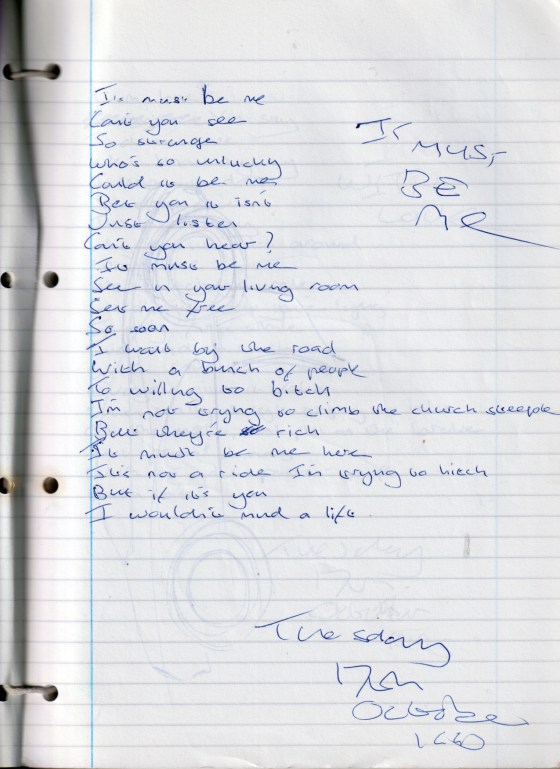 It must be me
Can't you see
So strange
Who's so unlucky
Could it be me
Bet you it isnt
Just listen
Can't you hear?
It must be me
See in your living room
Set me free
So soon
I wait by the road
With a bunch of people
To willing to bitch
I'm not trying to climb the church steeple
But they're rich
It must be me here
It's not a ride I'm trying to hitch
But if it's you
I wouldn't mind a lift
IT
MUST
BE
Me
Tuesday
17th
October